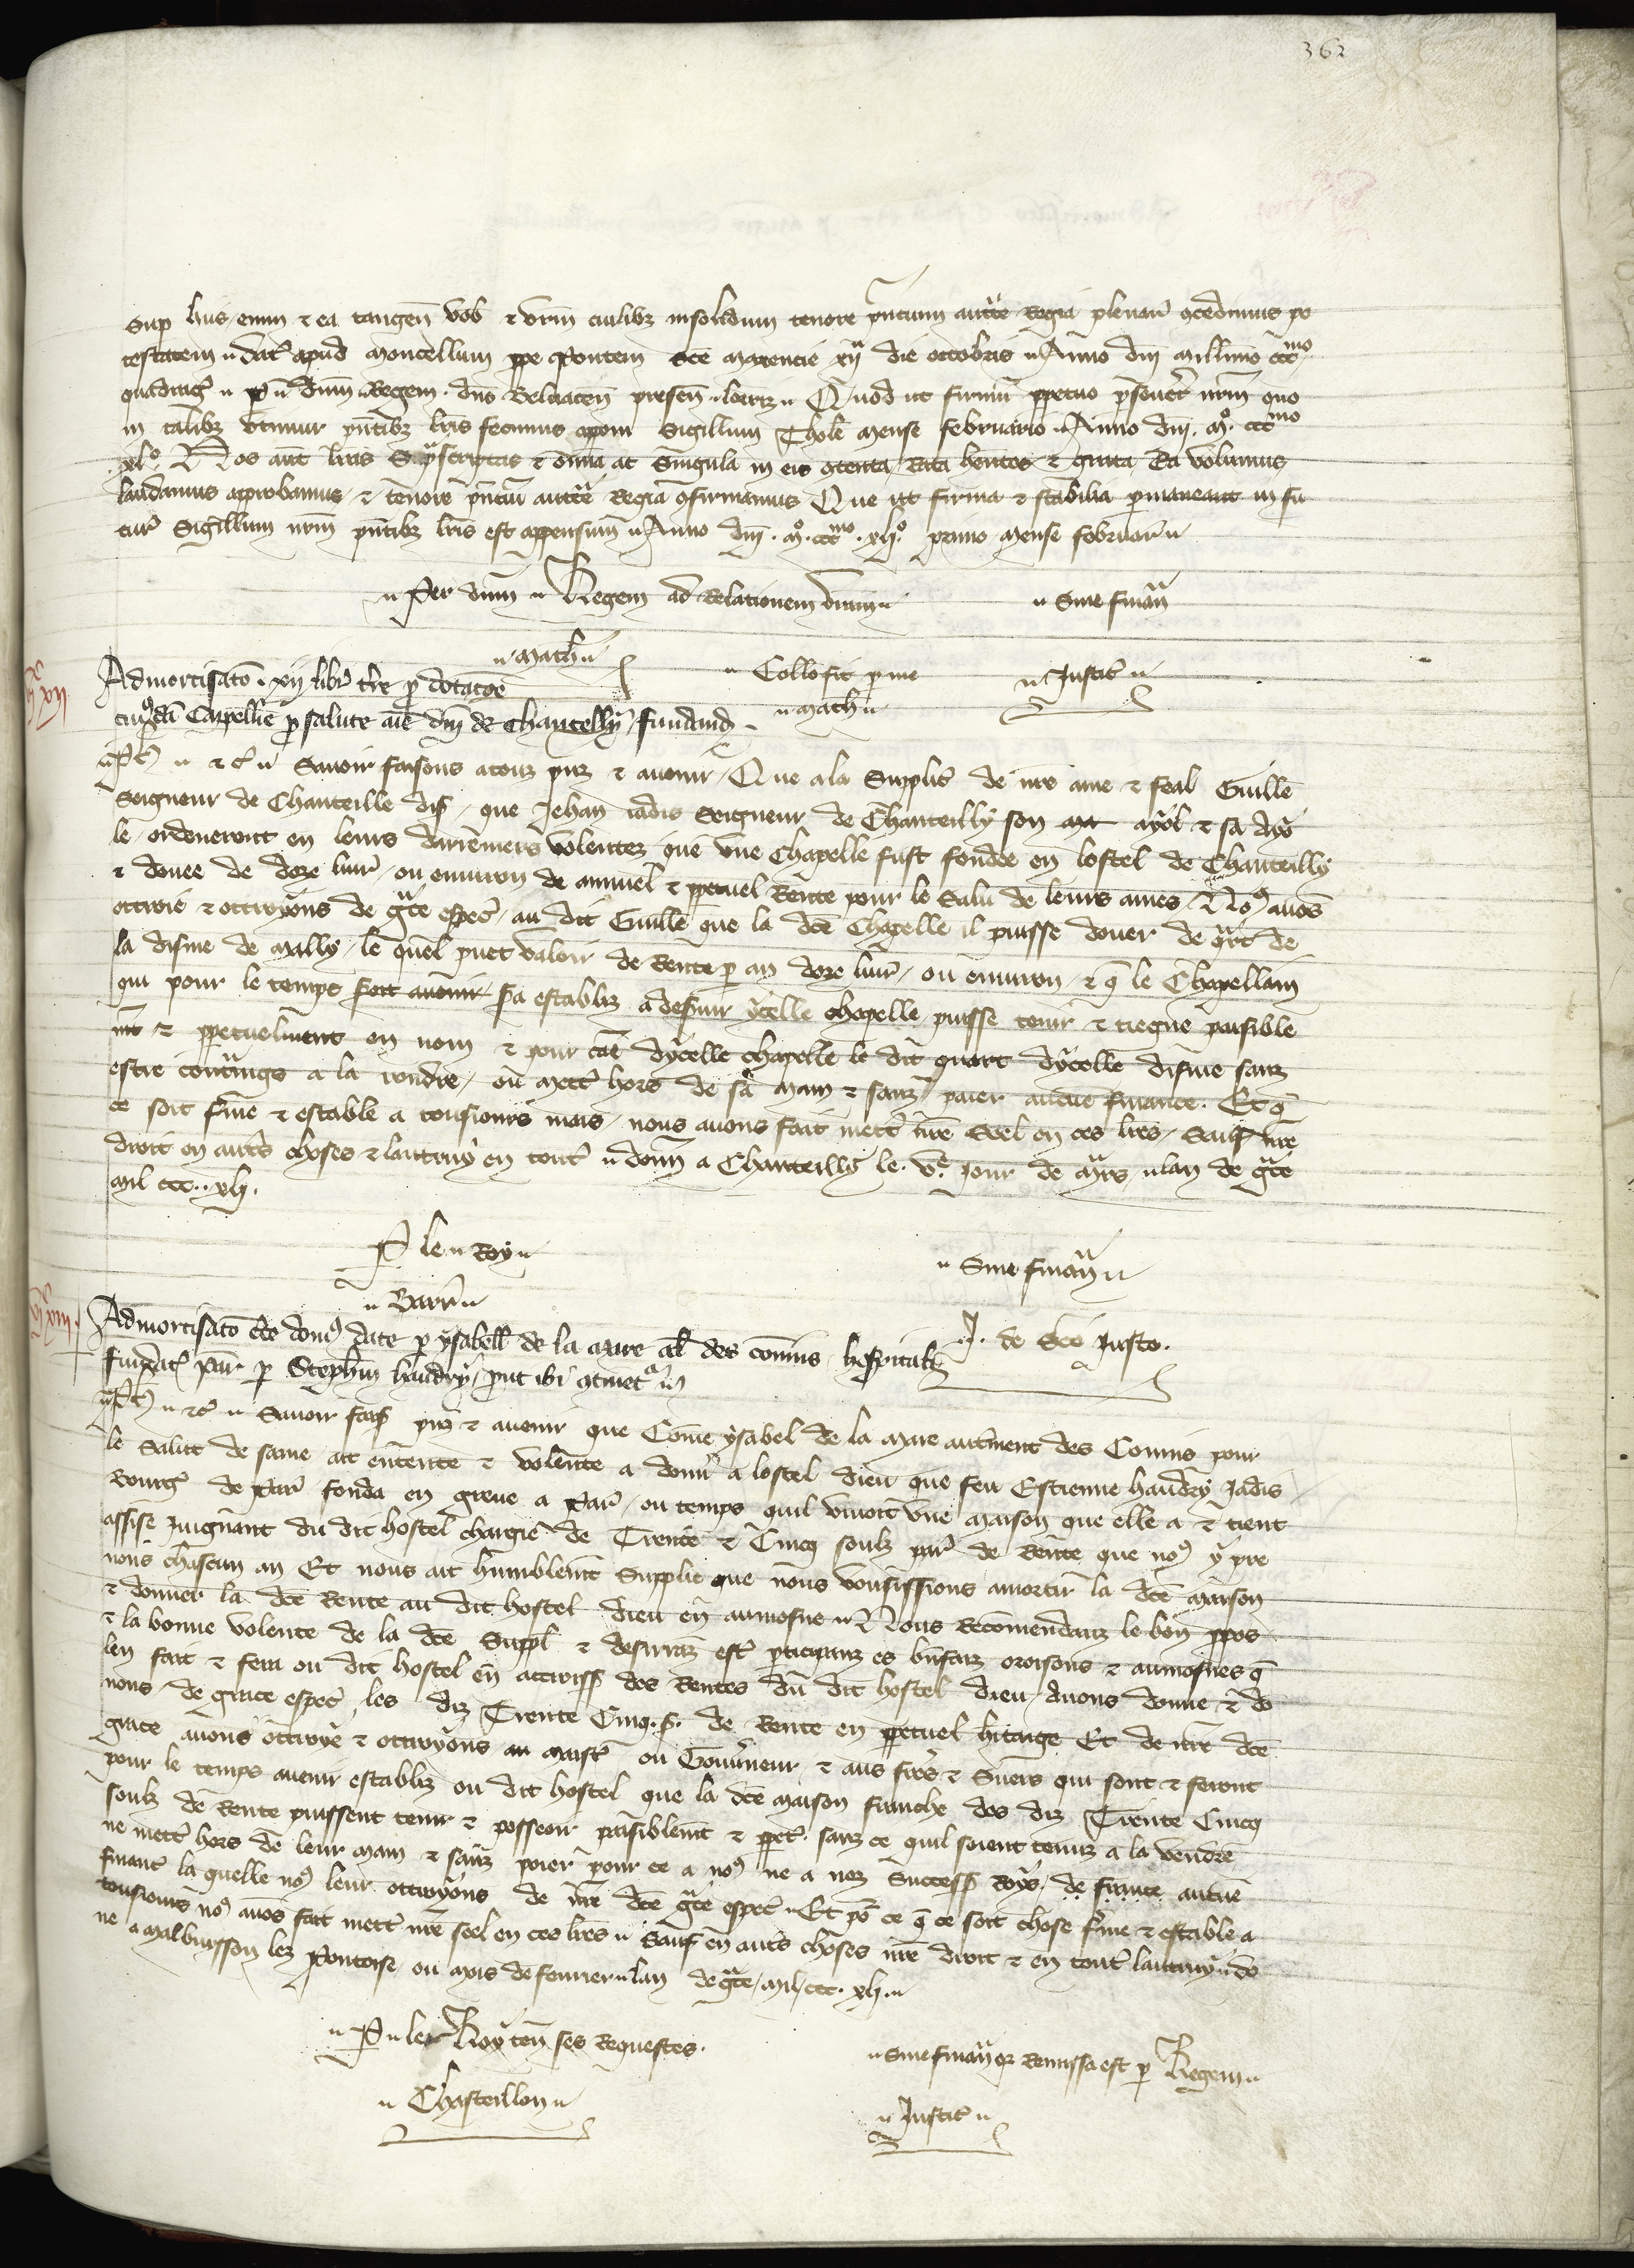 362
Sup hiis enim & ea tangen vob & vrm cuilibz insolidum tenore pncium aucte Regia plenar concedimus po
testatem dat apud moncellum ppe Pontem sce maxencie xij die octobris Anno dni millimo ccc mo
quadrag p dnm Regem dno Beluacen presen lorriz Quod ut firmu ppetuo pseveret nrm quo
in talibz utimur pntibz lris fecimus apponi Sigillum Thole mense februario Anno dni m ccc mo
xl Nos aut lras Suprascriptas & omia ac Singula in eis contenta Rata hentes & grata Ea volumus
laudamus approbamus & tenore pnciu aucte Regia confirmamus Que ut firma & stabilia permaneant in fu
tur Sigillum nrm pntibz lris est appensum Anno dni m ccc mo xl primo mense februar
Per dnm Regem ad Relationem vram
Sine finan
Math
Collo fit p me
Math
Justic
vc xii
Admortisato xij libr tre p dotacoe
cuiusda Capellie p salute aie dni de Chantelly fundand
Ph & c Savoir faisons a touz pnz & avenir Que a la Supplic de nre ame & feal Guille
Seigneur de Chanteille dis que Jehan iadis Seigneur de Chanteilly son ayol & sa ayo
le ordenerent en leurs derremers volentez que une Chapelle fust fondee en lostel de Chanteilly
& douee de doze livr ou environ de annuel & ppetuel Rente pour le Salu de leurs ames Nos avos
ottroie & ottroyons de gce espec au dit Guille que la dce Chapelle il puisse douer de quart de
la disme de Milly le quel puet valoir de Rente p an doze livr ou environ & q le Chapellain
qui pour le temps sera establiz a deservir ycelle chapelle puisse tenir & tiegne paisible
mt & ppetuelment en nom & pour cause dycelle chapelle le dit quart dycelle disme sanz
estre contrains a la vendre ou mett hors de sa main & sanz paier aucue finance Et q
ce soit ferme & estable a tousiours mais nous avons fait mett nre Seel en ces lres Sauf nre
droit en autres choses & lautruy en toutes donn a Chanteilly le v jour de mars lan de gce
mil ccc xli
P le Roy
Barr
Sine finan
J. de Sco Justo
vc xiii
Admortisato cte dom date p ysabell de la mare al des comis hospitali
fundat Par p Stephm haudry put ibi continet
Ph & c Savoir fais pnz & avenir que Come ysabel de la Mare autment des Comis pour
le Salut de same ait entente & volente a donn a lostel dieu que feu Estienne haudry Jadis
Bourg de Par fonda en greve a Par ou temps quil vivoit une maison que elle a & tient
assise Joignant du dit hostel chargie de Trente & Cincq soulz par de Rente que nos y pre
nons chascun an Et nous ait humblemt Supplie que nous vousissions amortir la dce maison
& donner la dce Rente au dit hostel dieu en aumosne Nous Recomendanz le bon ppos
& la bonne volente de la dce Suppl & desirrans est pticipanz es bnfaiz oroisons & aumosnes q
len fait & fera ou dit hostel en accroiss des Rentes du dit hostel dieu Avons donne & do
nons de grace espec les diz Trente Cinq s. de Rente en ppetuel hitaige Et de nre dce
grace avons ottroye & ottroyons au maist ou Gouverneur & aus freres & Suers qui sont & seront
pour le temps avenir establiz ou dit hostel que la dce maison franche des diz Trente Cincq
soulz de Rente puissent tenir & posseoir paisiblemt & ppet sanz ce quil soient tenuz a la vendre
ne mett hors de leur main & sanz poier pour ce a nos ne a noz Success Roys de france aucue
financ la quelle nos leur ottroyons de nre dce gce espec Et pour ce q ce soit chose ferme & estable a
tousiours nos avos fait mett nre seel en ces lres Sauf en autres choses nre droit & en toutes lautruy do
ne a Malbuisson lez Pontoise ou mois de fevrier lan de gce mil ccc xli
P le Roy ten ses Requestes
Chasteillon
Sine finan qz Remissa est p Regem
Justic